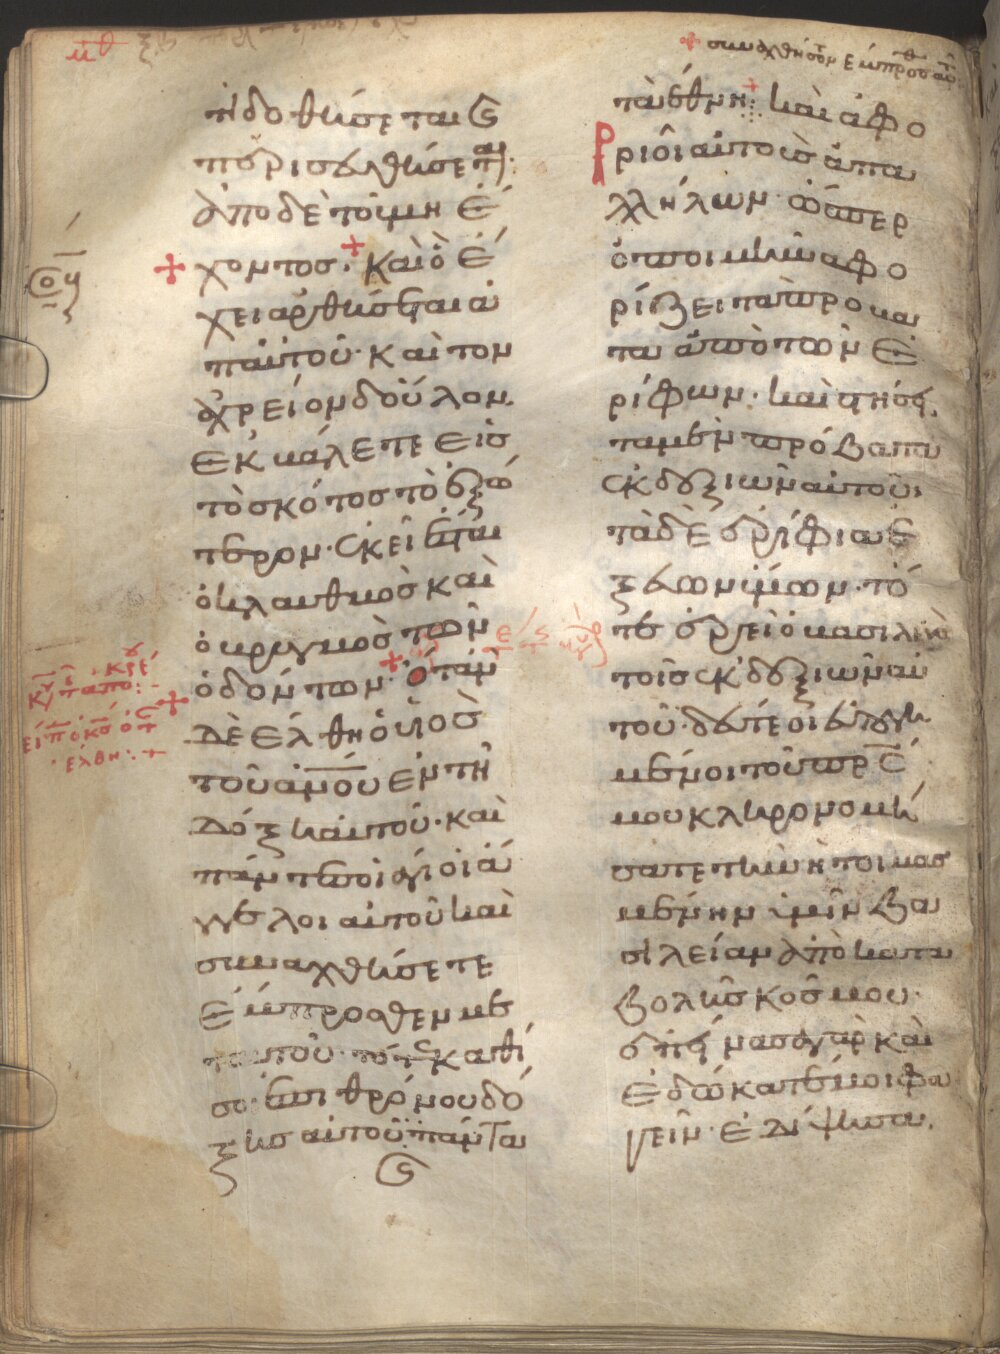 μθ
+ συναχθήσοντ ἔμπροσθ αὐτοῦ
τὶ δοθήσεται καὶ
περισσευθήσεται·
ἀπὸ δὲ τοῦ μὴ ἔ
χοντος· καὶ ὃ ἔ
χει ἀρθήσεται ἀ
π' αὐτοῦ· καὶ τὸν
ἀχρεῖον δοῦλον
ἐκβάλετε εἰς
τὸ σκότος τὸ ἐξώ
τερον· ἐκεῖ ἔσται
ὁ κλαυθμὸς καὶ
ὁ βρυγμὸς τῶν
ὀδόντων· ὅταν
δὲ ἔλθη ὁ υἱὸς
τοῦ ἀνου ἐν τῆ
δόξη αὐτοῦ· καὶ
πάντες οἱ ἅγιοι ἄ
γγελοι αὐτοῦ καὶ
συναχθήσετε
ἔμπροσθεν με
τ αυτοῦ· τότε καθί
σει ἐπὶ θρόνου δό
ξης αὐτοῦ· πάντα
καὶ
τὰ ἔθνη: καὶ ἀφο
ριοῖ αὐτοὺς ἀπ' ἀ
λλήλων· ὥσπερ
ὁ ποιμὴν ἀφο
ρίζει τὰ πρόβα
τα ἀπὸ τῶν ἐ
ρίφων· καὶ στήσει
τὰ μὲν πρόβατα
ἐκ δεξιῶν αὐτοῦ·
τὰ δὲ ἐρίφια ἐ
ξ εὐωνύμων· τό
τε ἐρεῖ ὁ βασιλεὺς
τοῖς ἐκ δεξιῶν αὐ
τοῦ· δεῦτε οἱ εὐλογη
μένοι τοῦ πρς
μου κληρονομή
σατε τὴν ἡτοιμασ
μένην ὑμῖν βα
σιλείαν ἀπὸ κατα
βολῆς κόσμου·
ἐπείνασα γὰρ καὶ
ἐδώκατέ μοι φα
γεῖν· ἐδίψησα